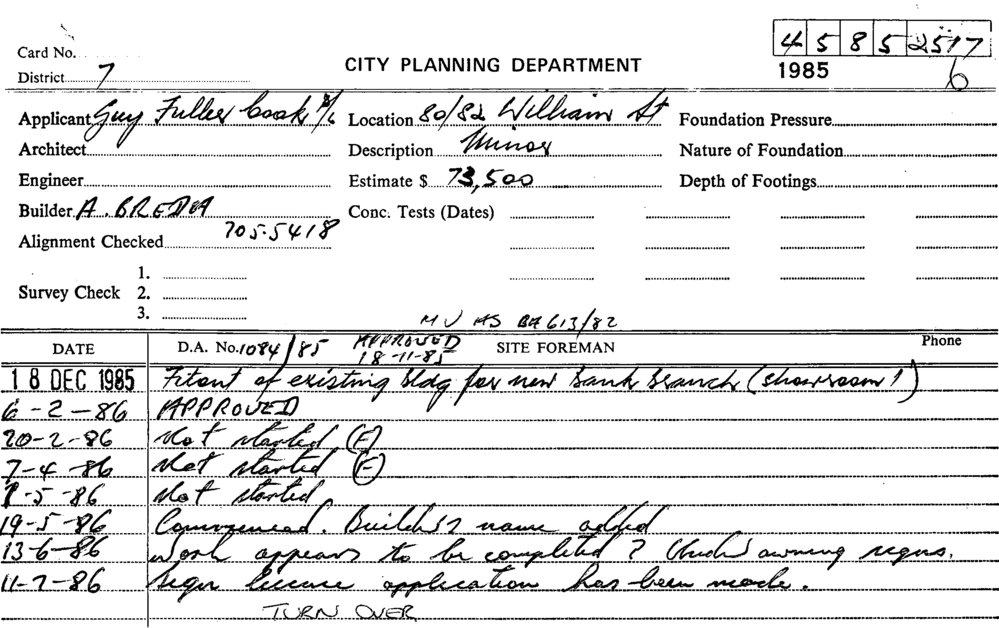 Card No.
4 5 8 5 2517
District 7
CITY PLANNING DEPARTMENT
1985
6
Applicant Guy Fuller Cook P/L Location 80/82 William St Foundation Pressure
Architect Description Minor Nature of Foundation
Engineer Estimate $ 73,500 Depth of Footings
Builder A. BREDA Conc. Tests (Dates)
Alignment Checked 705-5418
1.
Survey Check 2.
3.
M U HS BA 613/82
DATE D.A. No. 1084/85 APPROVED 18-11-85 SITE FOREMAN Phone
18 DEC 1985 Fitout of existing bldg for new Bank Branch (showroom!)
6-2-86 APPROVED
20-2-86 Not started (F)
7-4-86 Not started (F)
1-5-86 Not started
19-5-86 Commenced. Builder's name added
13-6-86 Work appears to be completed ? Check awning signs.
11-7-86 Sign license application has been made.
TURN OVER